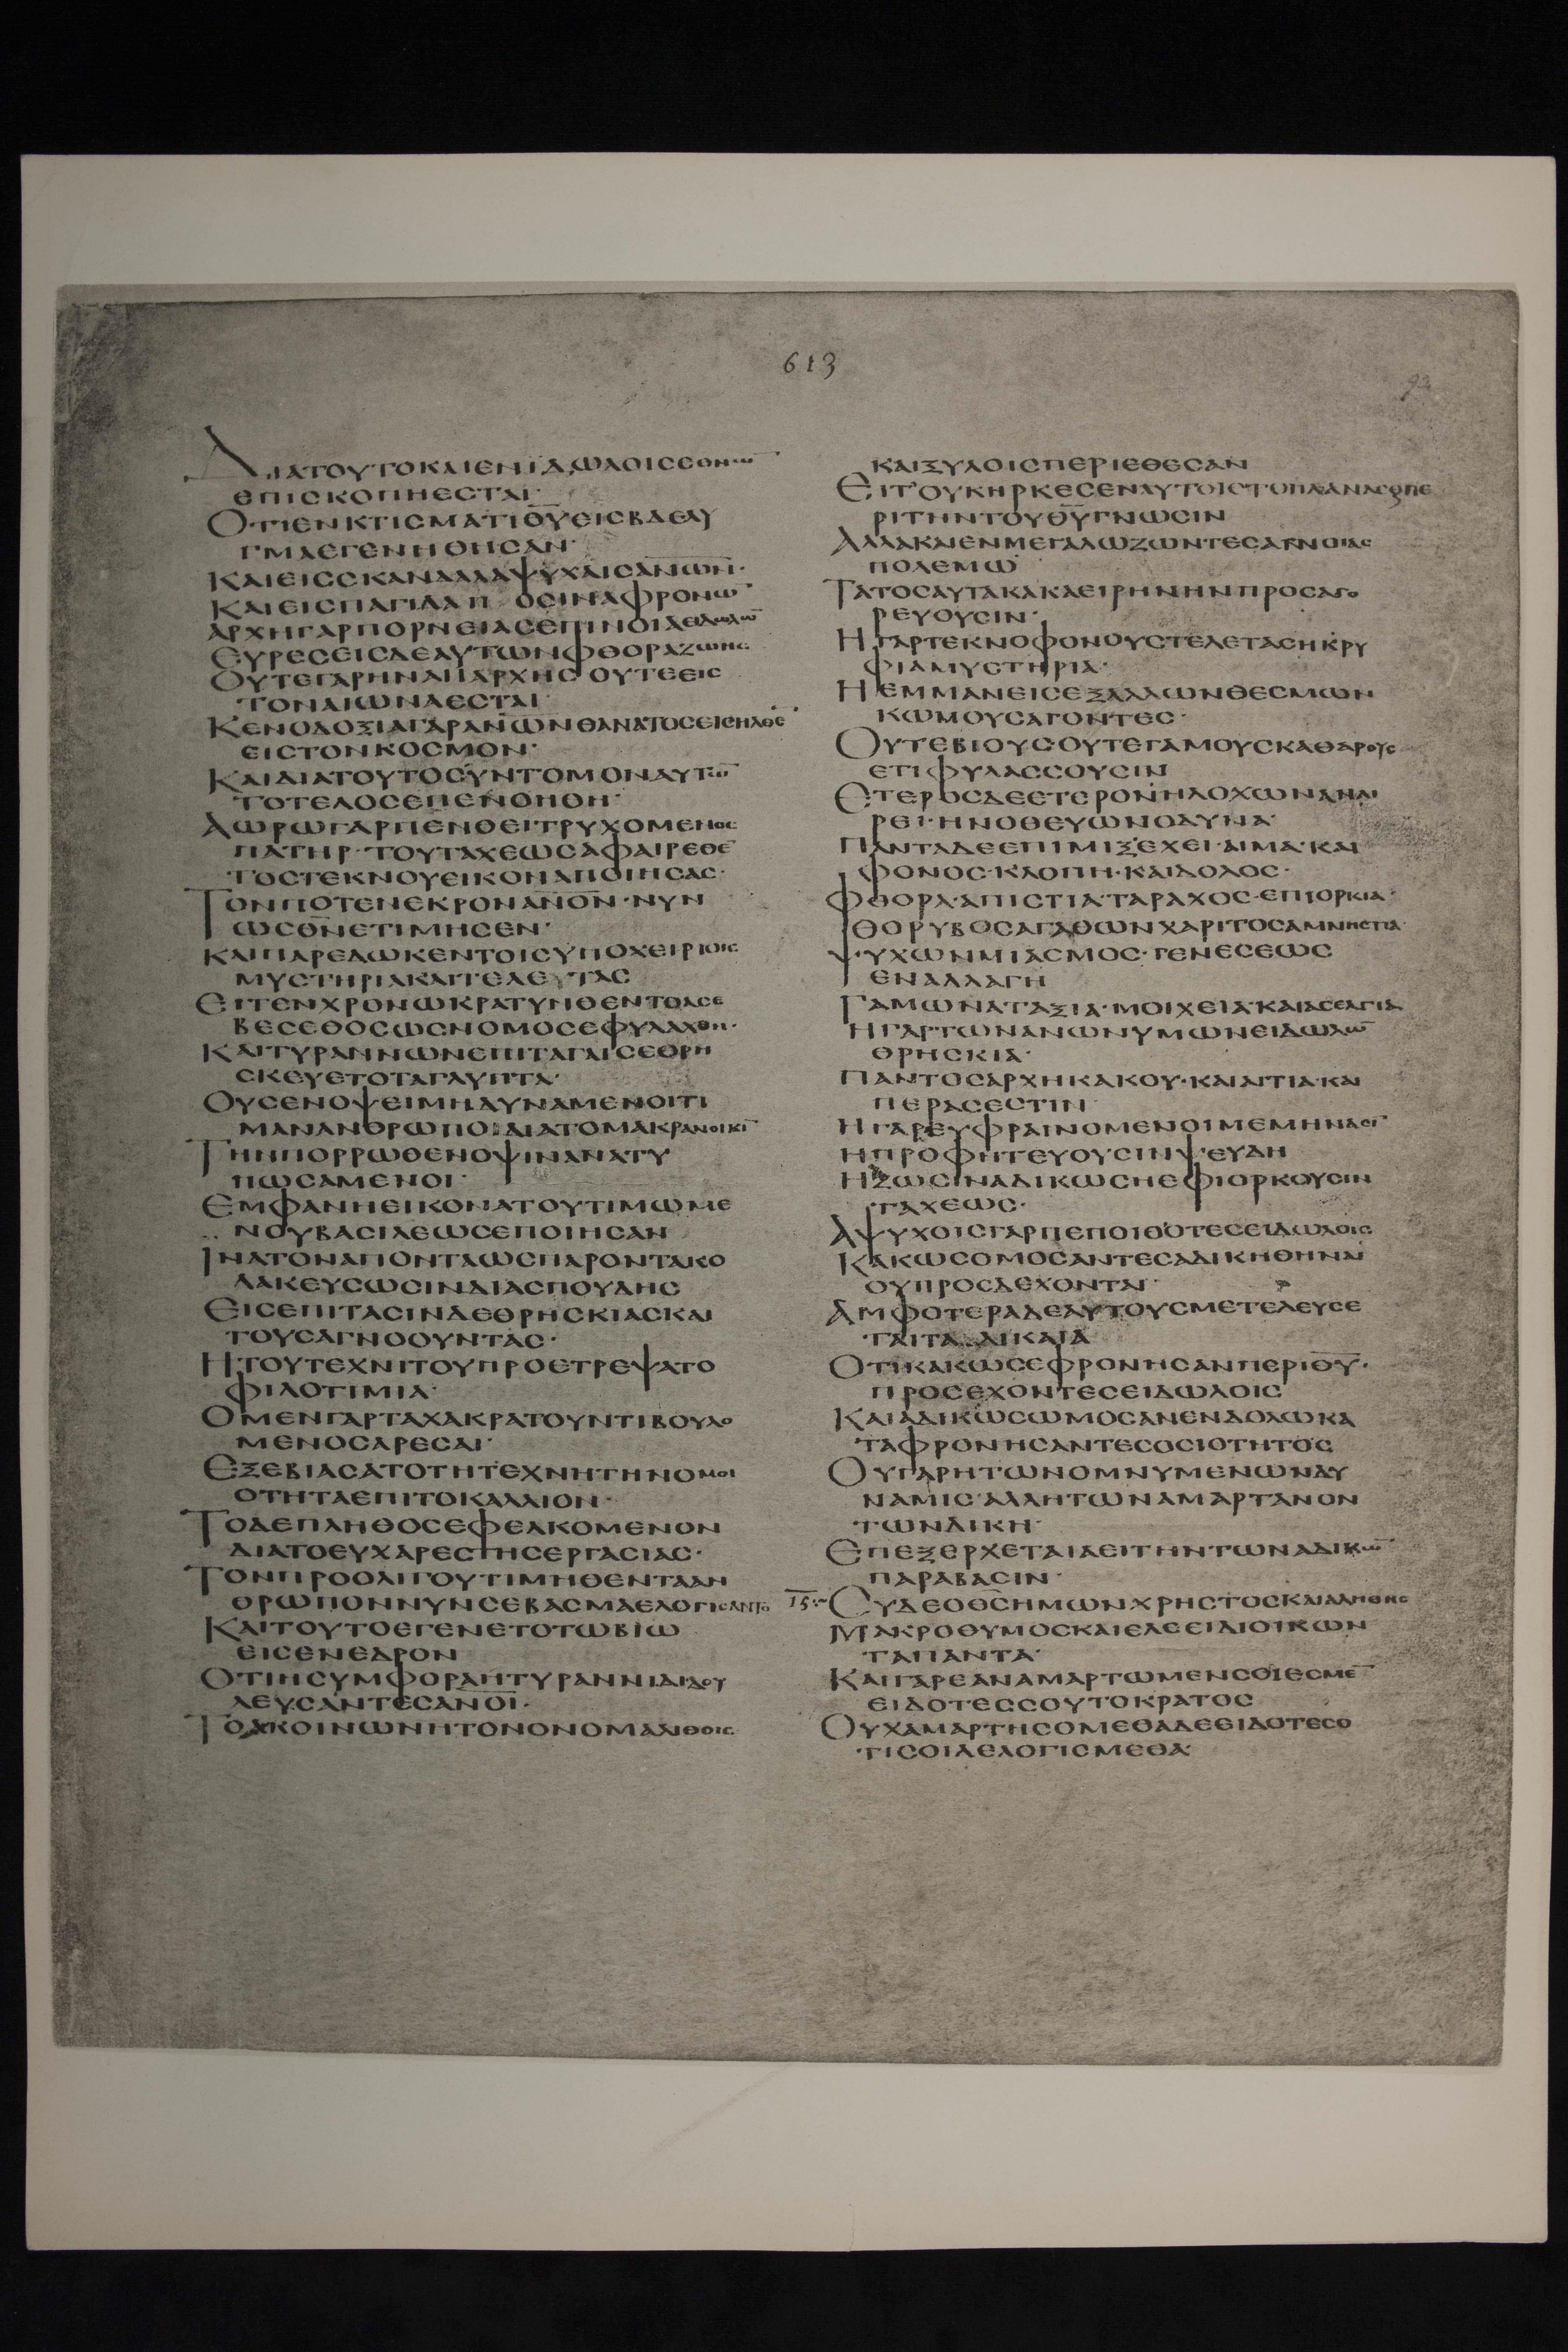 613
93
ΔΙΑΤΟΥΤΟΚΑΙΕΝΙΔΩΛΟΙCΕΘΝΩ̅
ΕΠΙCΚΟΠΗΕCΤΑΙ·
ΟΤΙΕΝΚΤΙCΜΑΤΙΘ̅Υ̅ΕΙCΒΔΕΛΥ
ΓΜΑΕΓΕΝΗΘΗCΑΝ·
ΚΑΙΕΙCCΚΑΝΔΑΛΑΨΥΧΑΙCΑ̅Ν̅Ω̅Ν̅·
ΚΑΙΕΙCΠΑΓΙΔΑΠ ΟCΙΝΑΦΡΟΝΩ̅
ΑΡΧΗΓΑΡΠΟΡΝΕΙΑCΕΠΙΝΟΙΑΕΙΔΩΛΩ̅
ΕΥΡΕCΕΙCΔΕΑΥΤΩΝΦΘΟΡΑΖΩΗC
ΟΥΤΕΓΑΡΗΝΑΠΑΡΧΗC ΟΥΤΕΕΙC
ΤΟΝΑΙΩΝΑΕCΤΑΙ·
ΚΕΝΟΔΟΞΙΑΓΑΡΑΝ̅Ω̅ΝΘΑΝΑΤΟCΕΙCΗΛΘΕ̅
ΕΙCΤΟΝΚΟCΜΟΝ·
ΚΑΙΔΙΑΤΟΥΤΟCΥΝΤΟΜΟΝΑΥΤΩ̅
ΤΟΤΕΛΟCΕΠΕΝΟΗΘΗ·
ΑΩΡΩΓΑΡΠΕΝΘΕΙΤΡΥΧΟΜΕΝΟC
ΠΑΤΗΡ·ΤΟΥΤΑΧΕΩCΑΦΑΙΡΕΘΕ̅
ΤΟCΤΕΚΝΟΥΕΙΚΟΝΑΠΟΙΗCΑC·
ΤΟΝΠΟΤΕΝΕΚΡΟΝΑ̅Ν̅Ο̅Ν̅·ΝΥΝ
ΩCΘ̅Ν̅ΕΤΙΜΗCΕΝ·
ΚΑΙΠΑΡΕΔΩΚΕΝΤΟΙCΥΠΟΧΕΙΡΙΟΙC
ΜΥCΤΗΡΙΑΚΑΙΤΕΛΕΥΤΑC
ΕΙΤΕΝΧΡΟΝΩΚΡΑΤΥΝΘΕΝΤΟΑCΕ
ΒΕCΕΘΟCΩCΝΟΜΟCΕΦΥΛΑΧΘΗ·
ΚΑΙΤΥΡΑΝΝΩΝΕΠΙΤΑΓΑΙCΕΘΡΗ
CΚΕΥΕΤΟΤΑΓΛΥΠΤΑ·
ΟΥCΕΝΟΨΕΙΜΗΔΥΝΑΜΕΝΟΙΤΙ
ΜΑΝΑΝΘΡΩΠΟΙΔΙΑΤΟΜΑΚΡΑΝΟΙΚΙ̅
ΤΗΝΠΟΡΡΩΘΕΝΟΨΙΝΑΝΑΤΥ
ΠΩCΑΜΕΝΟΙ·
ΕΜΦΑΝΗΕΙΚΟΝΑΤΟΥΤΙΜΩΜΕ
ΝΟΥΒΑCΙΛΕΩCΕΠΟΙΗCΑΝ
ΙΝΑΤΟΝΑΠΟΝΤΑΩCΠΑΡΟΝΤΑΚΟ
ΛΑΚΕΥCΩCΙΝΔΙΑCΠΟΥΔΗC
ΕΙCΕΠΙΤΑCΙΝΔΕΘΡΗCΚΙΑCΚΑΙ
ΤΟΥCΑΓΝΟΟΥΝΤΑC·
ΗΤΟΥΤΕΧΝΙΤΟΥΠΡΟΕΤΡΕΨΑΤΟ
ΦΙΛΟΤΙΜΙΑ·
ΟΜΕΝΓΑΡΤΑΧΑΚΡΑΤΟΥΝΤΙΒΟΥΛΟ
ΜΕΝΟCΑΡΕCΑΙ·
ΕΞΕΒΙΑCΑΤΟΤΗΤΕΧΝΗΤΗΝΟΜΟΙ
ΟΤΗΤΑΕΠΙΤΟΚΑΛΛΙΟΝ·
ΤΟΔΕΠΛΗΘΟCΕΦΕΛΚΟΜΕΝΟΝ
ΔΙΑΤΟΕΥΧΑΡΕCΤΗCΕΡΓΑCΙΑC·
ΤΟΝΠΡΟΟΛΙΓΟΥΤΙΜΗΘΕΝΤΑΑΝ
ΘΡΩΠΟΝΝΥΝCΕΒΑCΜΑΕΛΟΓΙCΑΝΤΟ
ΚΑΙΤΟΥΤΟΕΓΕΝΕΤΟΤΩΒΙΩ
ΕΙCΕΝΕΔΡΟΝ
ΟΤΙΗCΥΜΦΟΡΑΗΤΥΡΑΝΝΙΔΙΔΟΥ
ΛΕΥCΑΝΤΕCΑΝ̅Ο̅Ι̅·
ΤΟΑΚΟΙΝΩΝΗΤΟΝΟΝΟΜΑΛΙΘΟΙC
ΚΑΙΞΥΛΟΙCΠΕΡΙΕΘΕCΑΝ
ΕΙΤΟΥΚΗΡΚΕCΕΝΑΥΤΟΙCΤΟΠΛΑΝΑCΘΠΕ
ΡΙΤΗΝΤΟΥΘ̅Υ̅ΓΝΩCΙΝ
ΑΛΛΑΚΑΙΕΝΜΕΓΑΛΩΖΩΝΤΕCΑΓΝΟΙΑC
ΠΟΛΕΜΩ
ΤΑΤΟCΑΥΤΑΚΑΚΑΕΙΡΗΝΗΝΠΡΟCΑΓΟ
ΡΕΥΟΥCΙΝ·
ΗΓΑΡΤΕΚΝΟΦΟΝΟΥCΤΕΛΕΤΑCΗΚΡΥ
ΦΙΑΜΥCΤΗΡΙΑ·
ΗΕΜΜΑΝΕΙCΕΞΑΛΛΩΝΘΕCΜΩΝ
ΚΩΜΟΥCΑΓΟΝΤΕC·
ΟΥΤΕΒΙΟΥCΟΥΤΕΓΑΜΟΥCΚΑΘΑΡΟΥC
ΕΤΙΦΥΛΑCCΟΥCΙΝ
ΕΤΕΡΟCΔΕΕΤΕΡΟΝΗΛΟΧΩΝΑΝΑΙ
ΡΕΙ·ΗΝΟΘΕΥΩΝΟΔΥΝΑ·
ΠΑΝΤΑΔΕΕΠΙΜΙΞΕΧΕΙ·ΑΙΜΑ·ΚΑΙ
ΦΟΝΟC·ΚΛΟΠΗ·ΚΑΙΔΟΛΟC·
ΦΘΟΡΑ·ΑΠΙCΤΙΑ·ΤΑΡΑΧΟC·ΕΠΙΟΡΚΙΑ·
ΘΟΡΥΒΟCΑΓΑΘΩΝΧΑΡΙΤΟCΑΜΝΗCΤΙΑ·
ΨΥΧΩΝΜΙΑCΜΟC·ΓΕΝΕCΕΩC
ΕΝΑΛΛΑΓΗ
ΓΑΜΩΝΑΤΑΞΙΑ·ΜΟΙΧΕΙΑ·ΚΑΙΑCΕΛΓΙΑ
ΗΓΑΡΤΩΝΑΝΩΝΥΜΩΝΕΙΔΩΛΩ̅
ΘΡΗCΚΙΑ·
ΠΑΝΤΟCΑΡΧΗΚΑΚΟΥ·ΚΑΙΑΙΤΙΑ·ΚΑΙ
ΠΕΡΑCΕCΤΙΝ·
ΗΓΑΡΕΥΦΡΑΙΝΟΜΕΝΟΙΜΕΜΗΝΑCΙ̅
ΗΠΡΟΦΗΤΕΥΟΥCΙΝΨΕΥΔΗ
ΗΖΩCΙΝΑΔΙΚΩCΗΕΦΙΟΡΚΟΥCΙΝ
ΤΑΧΕΩC·
ΑΨΥΧΟΙCΓΑΡΠΕΠΟΙΘΟΤΕCΕΙΔΩΛΟΙC
ΚΑΚΩCΟΜΟCΑΝΤΕCΑΔΙΚΗΘΗΝΑΙ
ΟΥΠΡΟCΔΕΧΟΝΤΑΙ·
ΑΜΦΟΤΕΡΑΔΕΑΥΤΟΥCΜΕΤΕΛΕΥCΕ
ΤΑΙΤΑ ΔΙΚΑΙΑ
ΟΤΙΚΑΚΩCΕΦΡΟΝΗCΑΝΠΕΡΙΘ̅Υ̅·
ΠΡΟCΕΧΟΝΤΕCΕΙΔΩΛΟΙC
ΚΑΙΑΔΙΚΩCΩΜΟCΑΝΕΝΔΟΛΩΚΑ
ΤΑΦΡΟΝΗCΑΝΤΕCΟCΙΟΤΗΤΟC
ΟΥΓΑΡΗΤΩΝΟΜΝΥΜΕΝΩΝΔΥ
ΝΑΜΙC·ΑΛΛΗΤΩΝΑΜΑΡΤΑΝΟΝ
ΤΩΝΔΙΚΗ·
ΕΠΕΞΕΡΧΕΤΑΙΑΕΙΤΗΝΤΩΝΑΔΙΚΩ̅
ΠΑΡΑΒΑCΙΝ·
15 CΥΔΕΟΘ̅C̅ΗΜΩΝΧΡΗCΤΟCΚΑΙΑΛΗΘΗC
ΜΑΚΡΟΘΥΜΟCΚΑΙΕΛΕΕΙΔΙΟΙΚΩΝ
ΤΑΠΑΝΤΑ·
ΚΑΙΓΑΡΕΑΝΑΜΑΡΤΩΜΕΝCΟΙΕCΜΕ̅
ΕΙΔΟΤΕCCΟΥΤΟΚΡΑΤΟC
ΟΥΧΑΜΑΡΤΗCΟΜΕΘΑΔΕΕΙΔΟΤΕCΟ
ΤΙCΟΙΛΕΛΟΓΙCΜΕΘΑ·